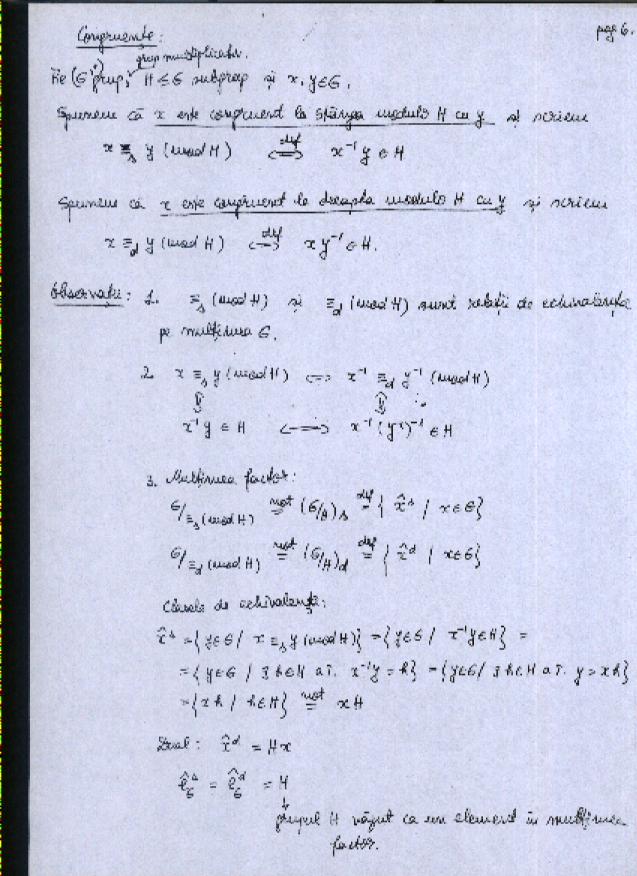 pag 6.
Congruențe:
grup multiplicativ.
Fie (G,·) grup, H ≤ G subgrup și x, y ∈ G.
Spunem că x este congruent la stânga modulo H cu y și scriem
x ≡ₛ y (mod H) ⟺ᵈᵉᶠ x⁻¹y ∈ H
Spunem că x este congruent la dreapta modulo H cu y și scriem
x ≡_d y (mod H) ⟺ᵈᵉᶠ xy⁻¹ ∈ H.
Observații: 1. ≡ₛ (mod H) și ≡_d (mod H) sunt relații de echivalență
pe mulțimea G.
2. x ≡ₛ y (mod H) ⟺ x⁻¹ ≡_d y⁻¹ (mod H)
⇕ ⇕
x⁻¹y ∈ H ⟺ x⁻¹(y⁻¹)⁻¹ ∈ H
3. Mulțimea factor:
G/≡ₛ(mod H) =ⁿᵒᵗ (G/H)ₛ =ᵈᵉᶠ { x̂ˢ / x∈G}
G/≡_d (mod H) =ⁿᵒᵗ (G/H)_d =ᵈᵉᶠ { x̂ᵈ / x∈G}
Clasele de echivalență:
x̂ˢ = {y∈G / x ≡ₛ y (mod H)} = {y∈G / x⁻¹y∈H} =
= {y∈G / ∃ h∈H a.î. x⁻¹y = h} = {y∈G / ∃ h∈H a.î. y = xh}
= {xh / h∈H} =ⁿᵒᵗ xH
Dual: x̂ᵈ = Hx
ê_Gˢ = ê_Gᵈ = H
↓
grupul H văzut ca un element în mulțimea
factor.